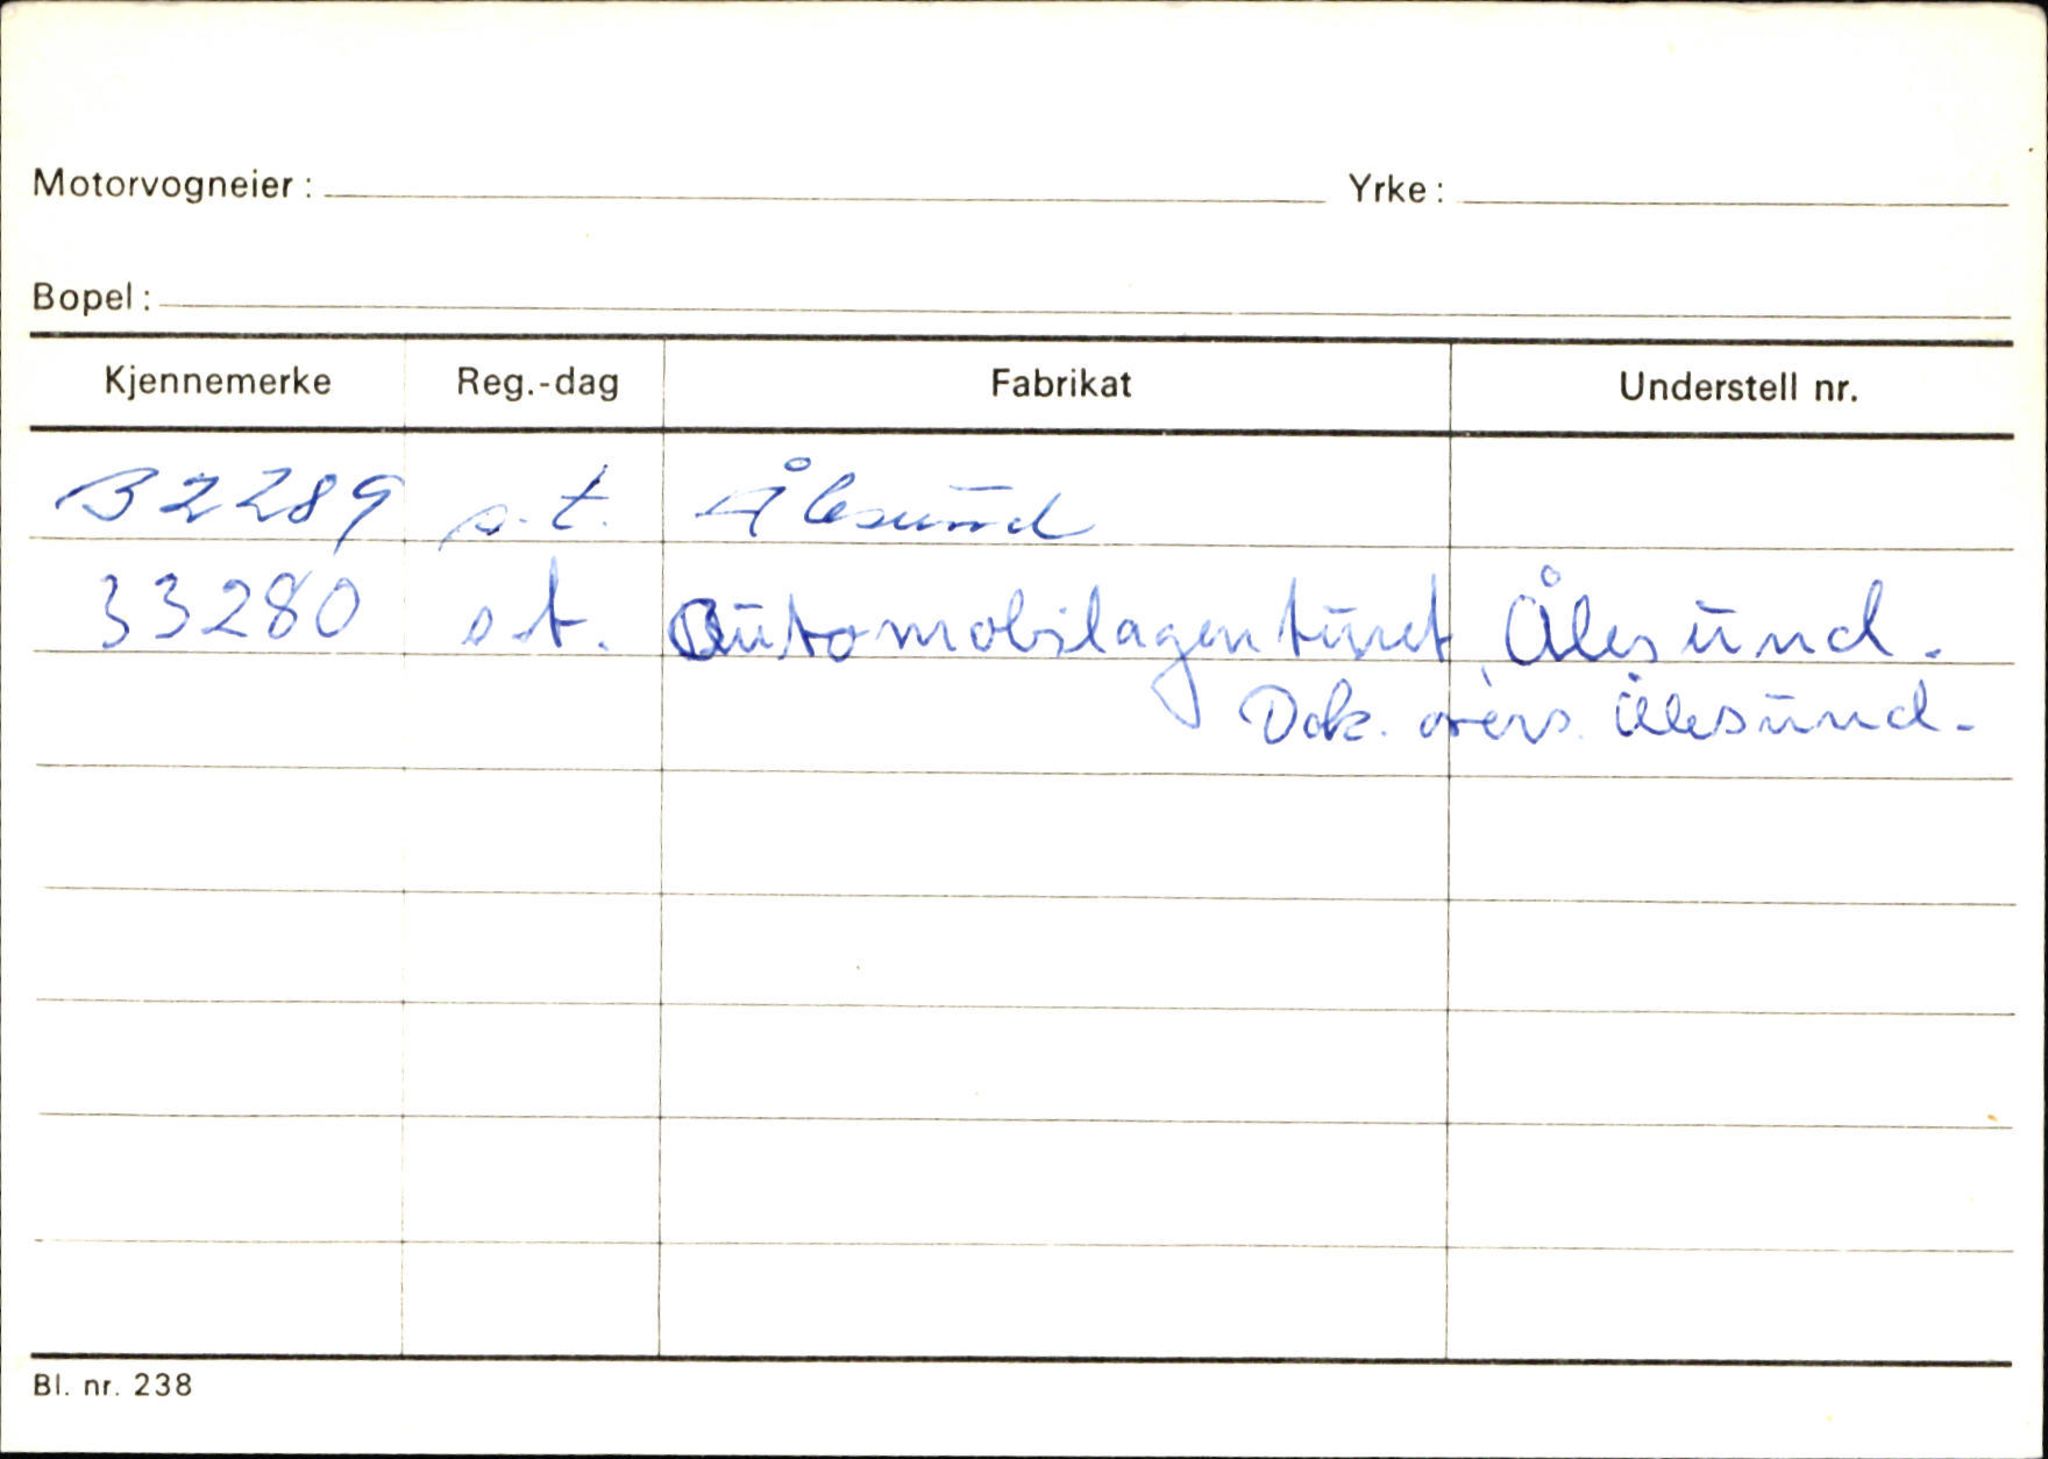 Motorvogneier :
Yrke :
Bopel :
Kjennemerke Reg.-dag Fabrikat Understell nr.
B2289 s.t. Ålesund
33280 s.t. Automobilagenturet Ålesund.
Dok. overs. Ålesund.
Bl. nr. 238